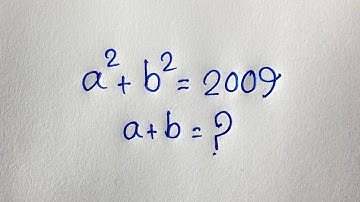 a² + b² = 2009
a+b = ?